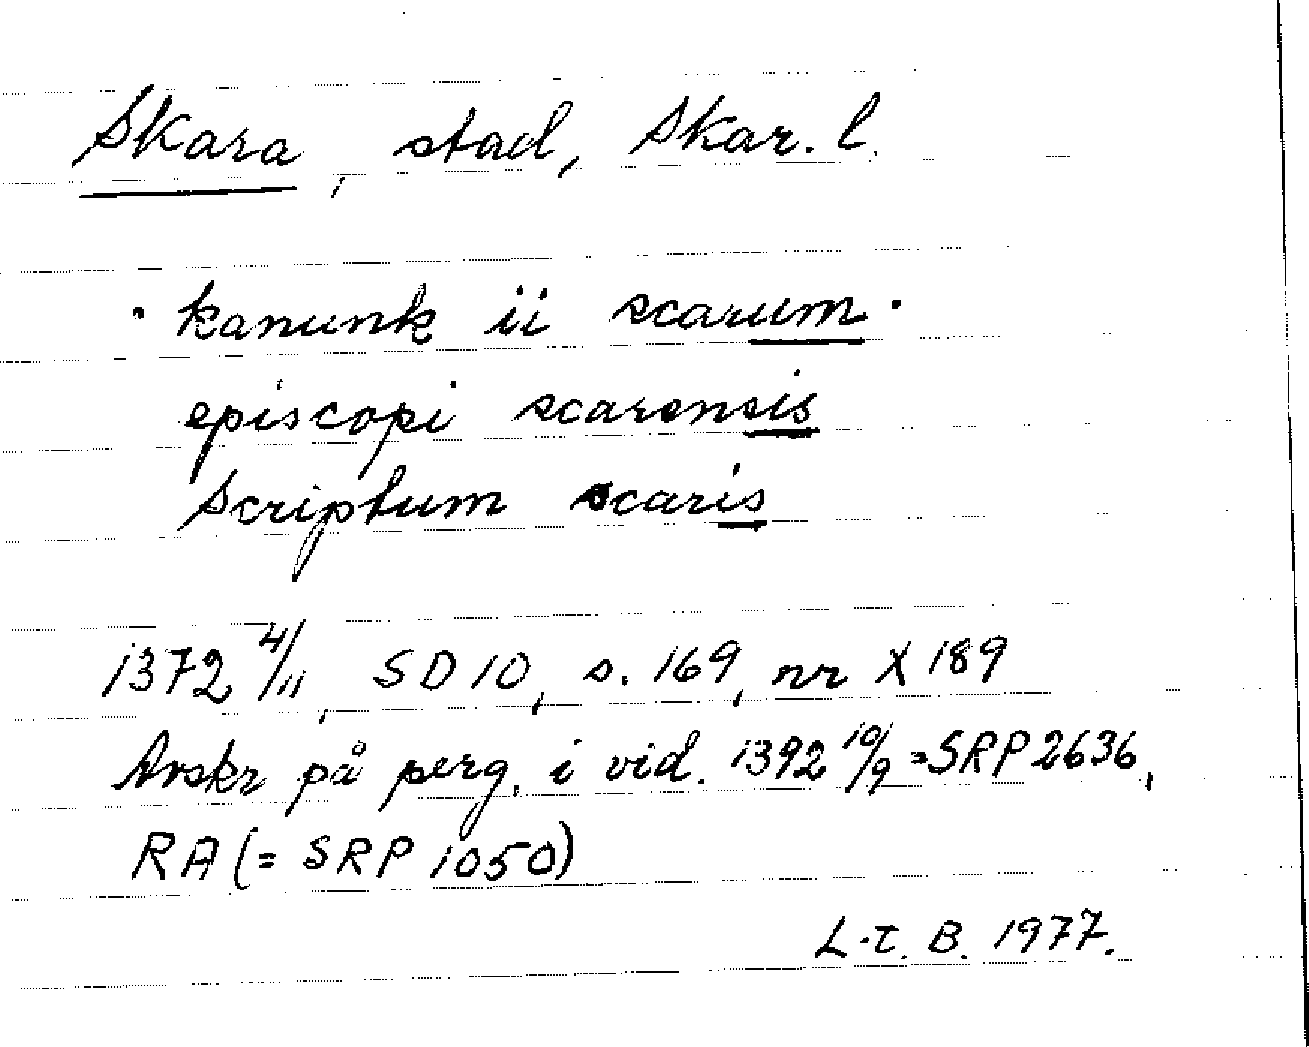 Skara, stad, Skar. l.
· kanunk ii scarum ·
episcopi scarensis
Scriptum scaris
1372 4/11, SD 10, s. 169, nr X 189
Avskr på perg. i vid. 1392 10/9 = SRP 2636,
RA (= SRP 1050)
L-t. B. 1977.